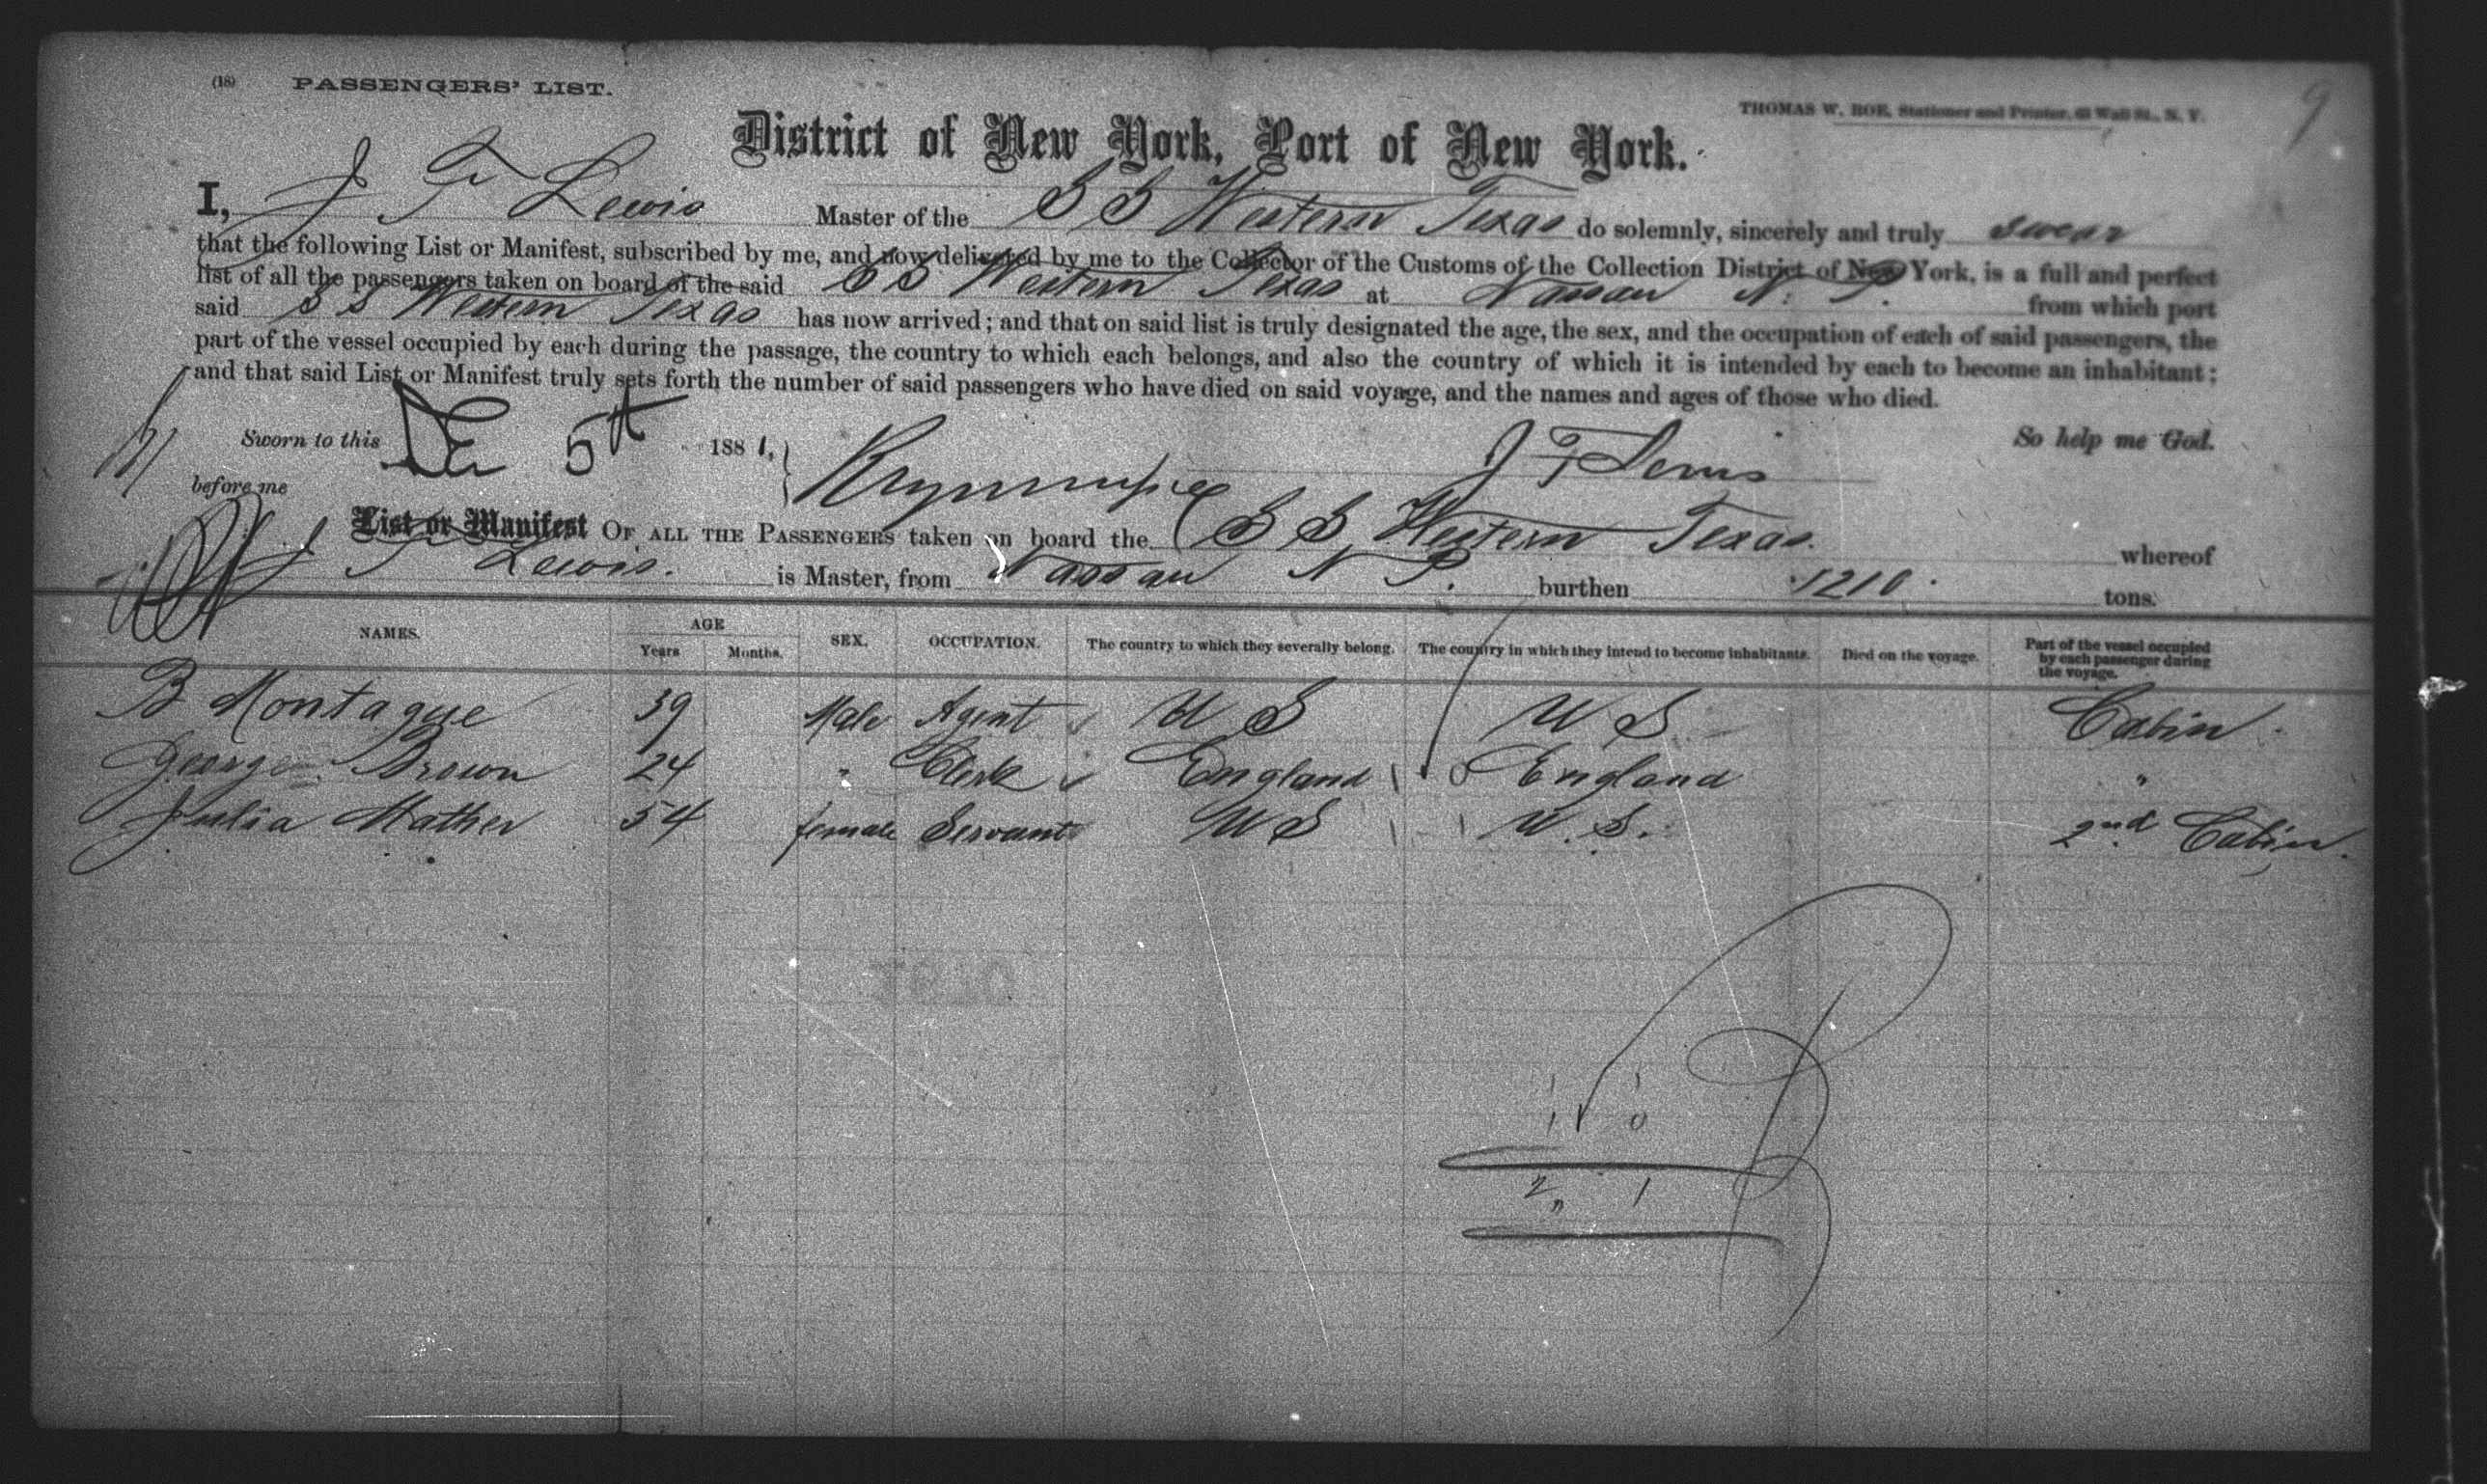 (18) PASSENGERS' LIST.
THOMAS W. ROE, Stationer and Printer, Wall St., N. Y.
9
District of New York, Port of New York.
I, J F Lewis Master of the S S Western Texas do solemnly, sincerely and truly swear
that the following List or Manifest, subscribed by me, and now delivered by me to the Collector of the Customs of the Collection District of New York, is a full and perfect
list of all the passengers taken on board of the said S S Western Texas at Nassau N. P. from which port
said S S Western Texas has now arrived; and that on said list is truly designated the age, the sex, and the occupation of each of said passengers, the
part of the vessel occupied by each during the passage, the country to which each belongs, and also the country of which it is intended by each to become an inhabitant;
and that said List or Manifest truly sets forth the number of said passengers who have died on said voyage, and the names and ages of those who died.
Sworn to this 5th 1881, J F Lewis So help me God.
before me
List or Manifest OF ALL THE PASSENGERS taken on board the S S Western Texas. whereof
J F Lewis. is Master, from Nassau N P. burthen 1210 tons.
NAMES. AGE Years Months. SEX. OCCUPATION. The country to which they severally belong. The country in which they intend to become inhabitants. Died on the voyage. Part of the vessel occupied by each passenger during the voyage.
B Montague 39 Male Agent U S U S Cabin
George Brown 24 " Clerk England England "
Julia Mather 54 female Servant U S U. S. 2nd Cabin.
1 1
1 0
2 1